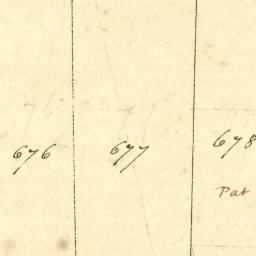 676 677 678
Pat